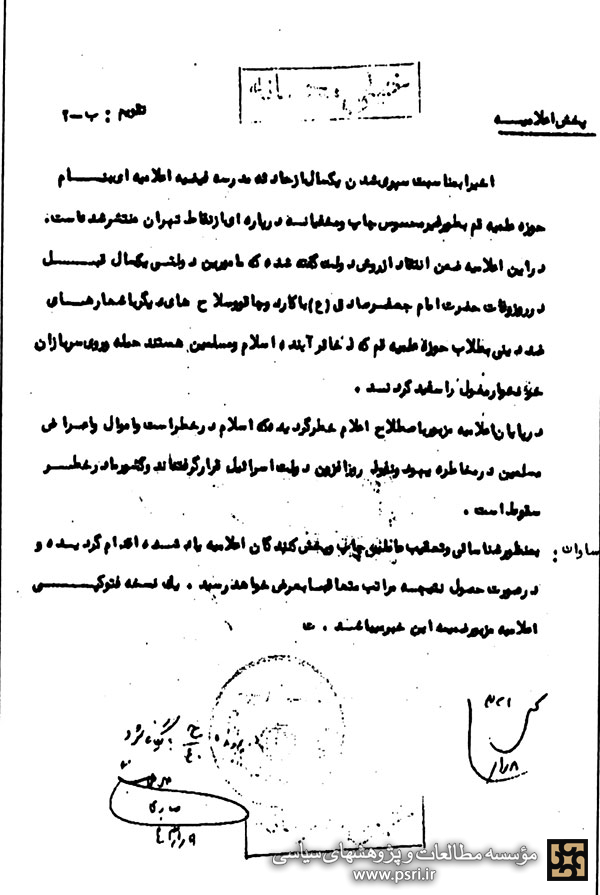 پخش اعلامیه
تقویم : ب-۲
اخیرا بمناسبت سپری شدن یکسال از حادثه مدرسه فیضیه اعلامیه ای بنام
حوزه علمیه قم بطور غیر محسوس چاپ و مخفیانه در پاره ای از نقاط تهران منتشر شده است.
در این اعلامیه ضمن انتقاد از روی دولت گفته شده که مامورین دولتی یکسال قبل
در روز وفات حضرت امام جعفر صادق (ع) با کارد و چاقو و سلاح های دیگر با شعارهای
ضد دینی بطلاب حوزه علمیه قم که ذخائر آینده اسلام و مسلمین هستند حمله و روی سربازان
خونخوار مغول را سفید کردند .
در پایان اعلامیه مزبور باصطلاح اعلام خطر گردیده که اسلام در خطر است و اموال و اعراض
مسلمین در مخاطره یهود و نفوذ روزافزون دولت اسرائیل قرار گرفته اند و کشور ما در خطر
سقوط است .
ساواک : بمنظور شناسائی و تعقیب عاملین چاپ و پخش کنندگان اعلامیه یاد شده اقدام گردیده و
در صورت حصول نتیجه مراتب متعاقبا بعرض خواهد رسید . یک نسخه فتوکپی
اعلامیه مزبور ضمیمه این خبر میباشد . ت
مؤسسه مطالعات و پژوهشهای سیاسی
www.psri.ir